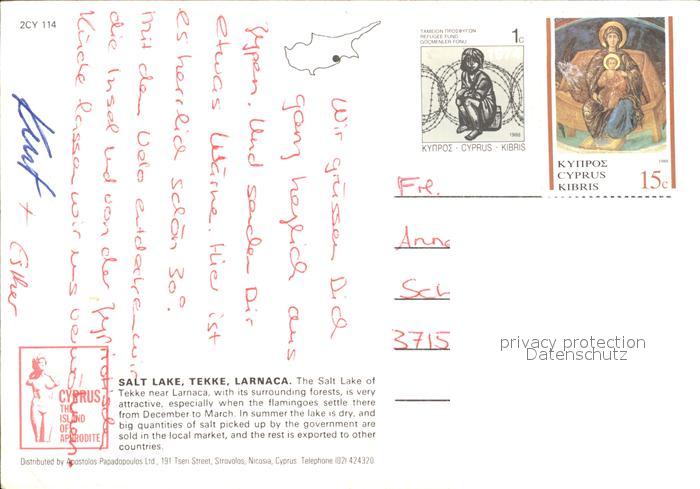 2CY 114
ΤΑΜΕΙΟΝ ΠΡΟΣΦΥΓΩΝ
REFUGEE FUND
GÖÇMENLER FONU
1c
1988
ΚΥΠΡΟΣ · CYPRUS · KIBRIS
ΚΥΠΡΟΣ
CYPRUS
KIBRIS
1988
15c
Wir grüssen Dich
ganz herzlich aus
Zypern. Und senden Dir
etwas Wärme. Hier ist
es herrlich schön 30°.
Mit dem Velo entdecken wir
die Insel und von der zypriotischen
Küche lassen wir uns verwöhnen.
Kurt + Esther
Frl.
Anna
Sch
3715
privacy protection
Datenschutz
CYPRUS
THE
ISLAND
OF
APHRODITE
SALT LAKE, TEKKE, LARNACA. The Salt Lake of
Tekke near Larnaca, with its surrounding forests, is very
attractive, especially when the flamingoes settle there
from December to March. In summer the lake is dry, and
big quantities of salt picked up by the government are
sold in the local market, and the rest is exported to other
countries.
Distributed by Apostolos Papadopoulos Ltd., 191 Tseri Street, Strovolos, Nicosia, Cyprus. Telephone (02) 424320